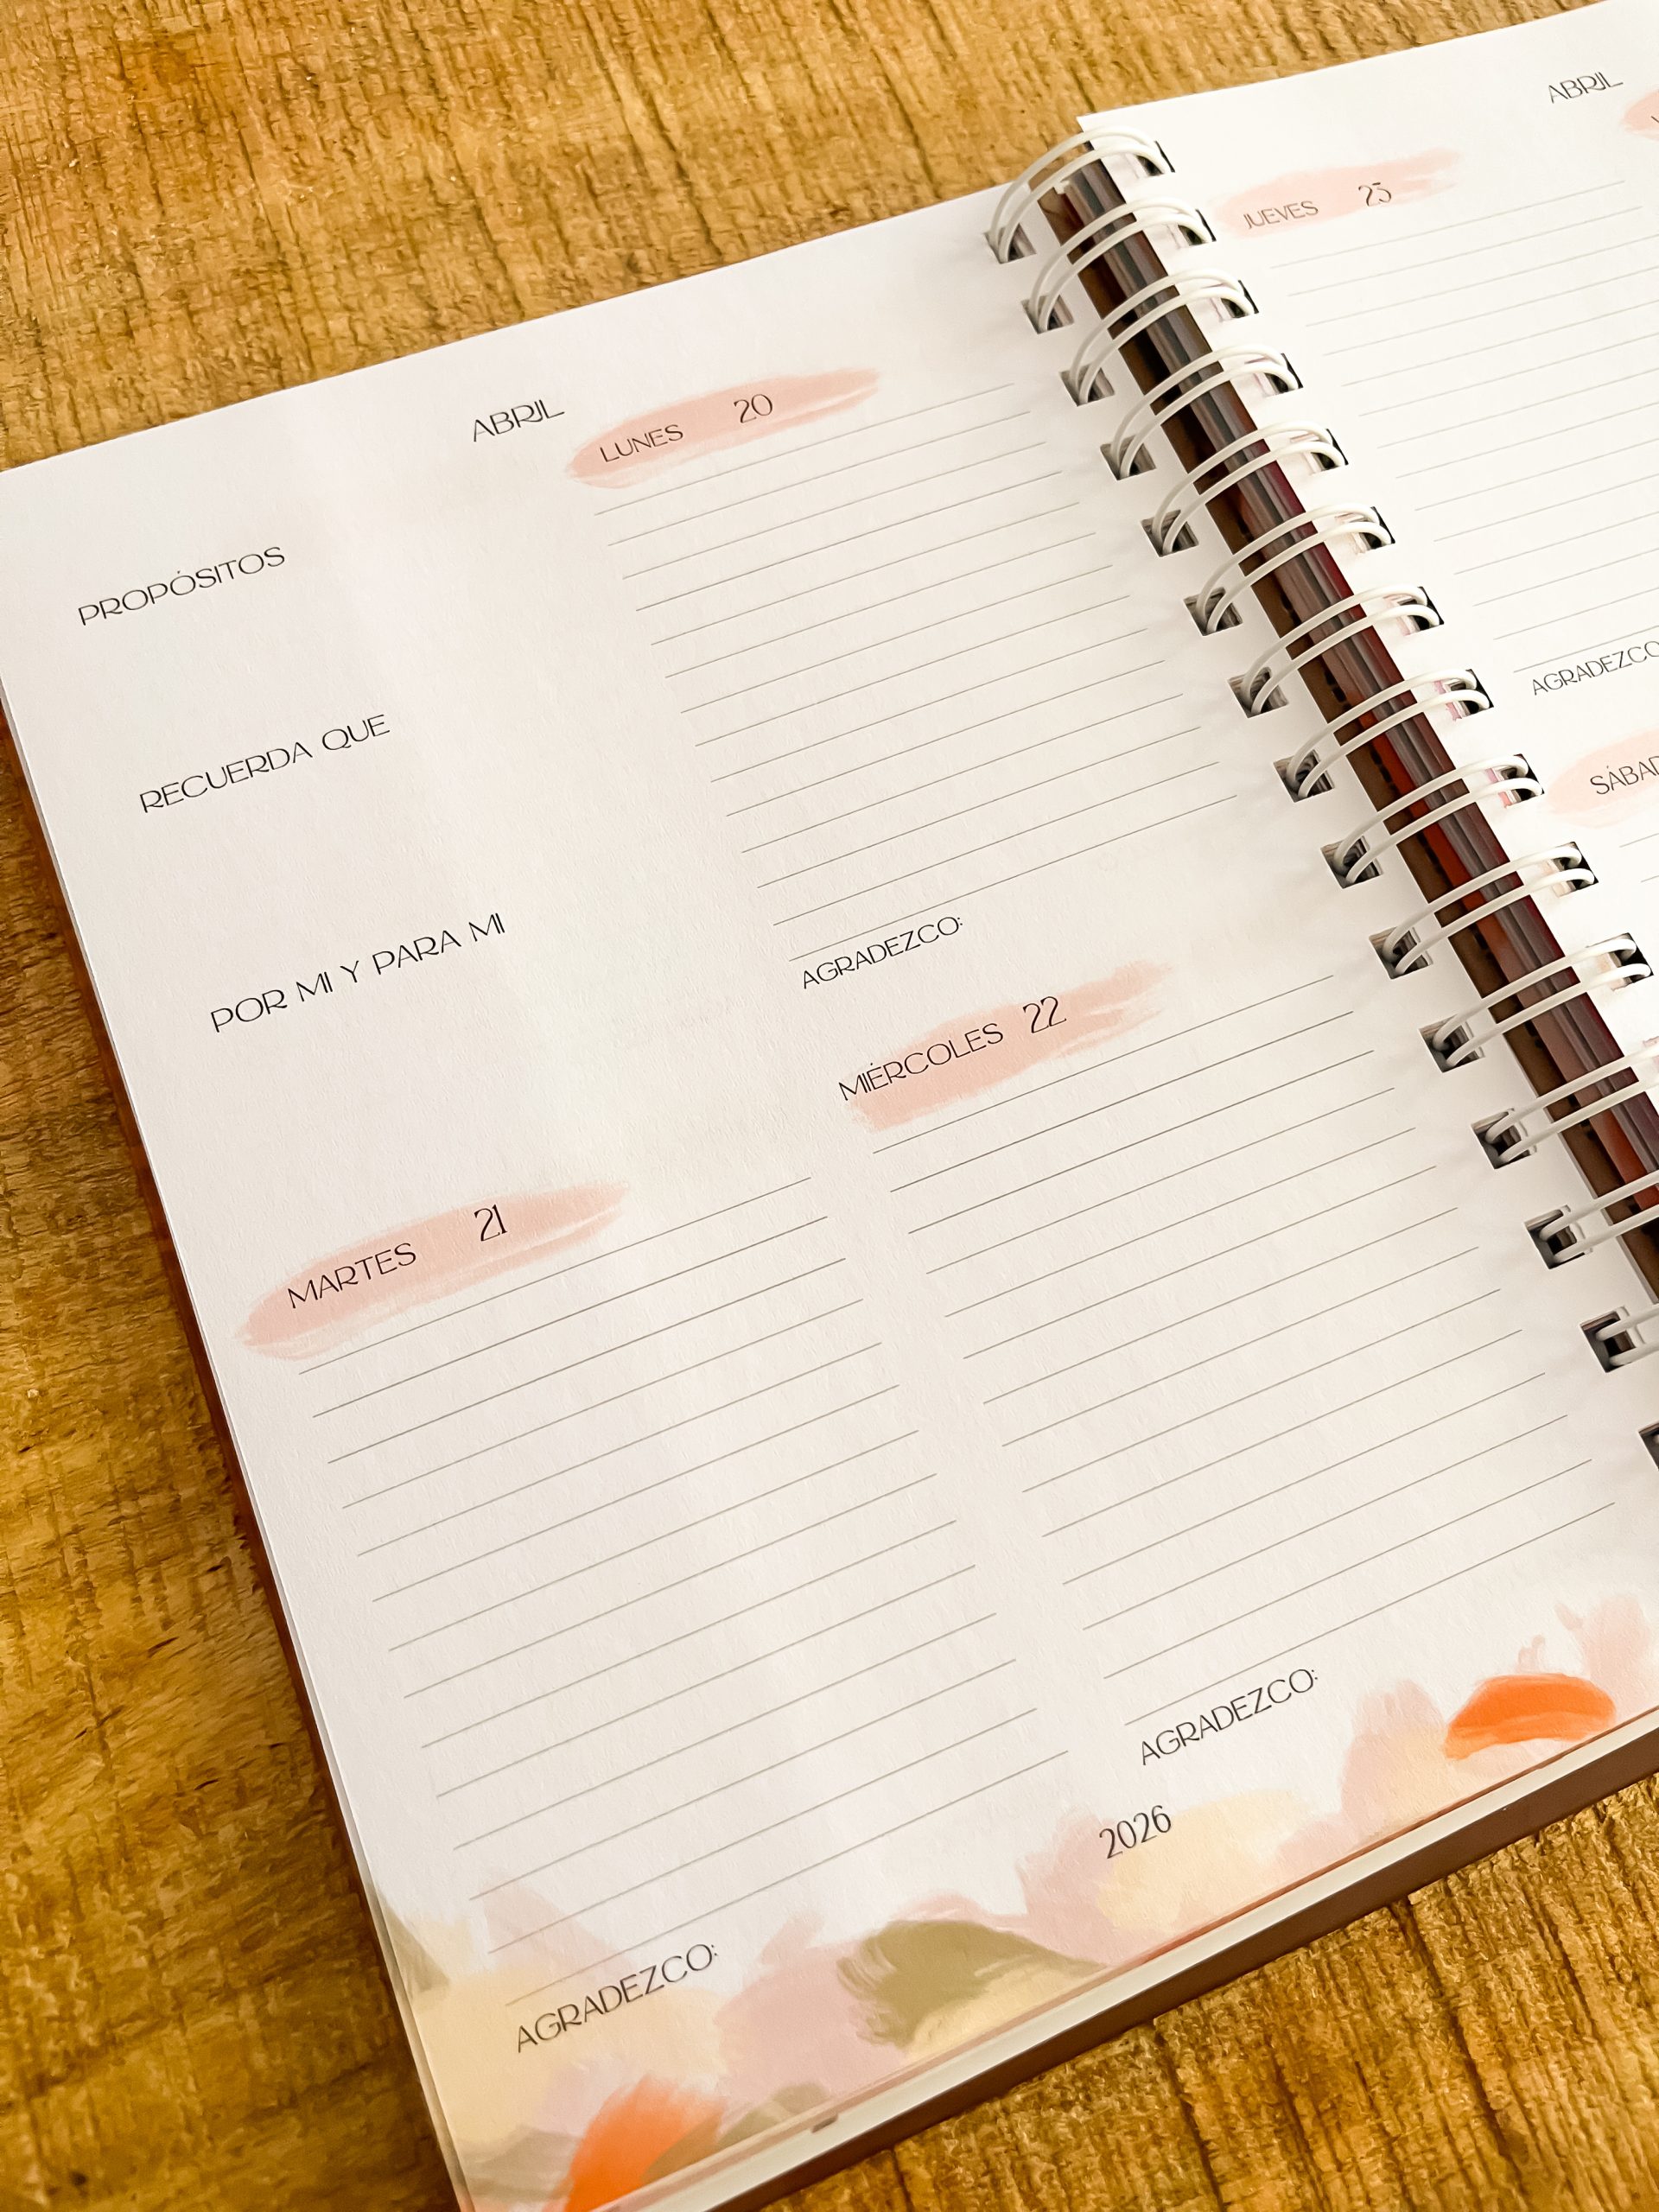 ABRIL
LUNES 20
PROPÓSITOS
RECUERDA QUE
POR MI Y PARA MI
AGRADEZCO:
MARTES 21
AGRADEZCO:
MIÉRCOLES 22
AGRADEZCO:
2026
ABRIL
JUEVES 23
AGRADEZCO